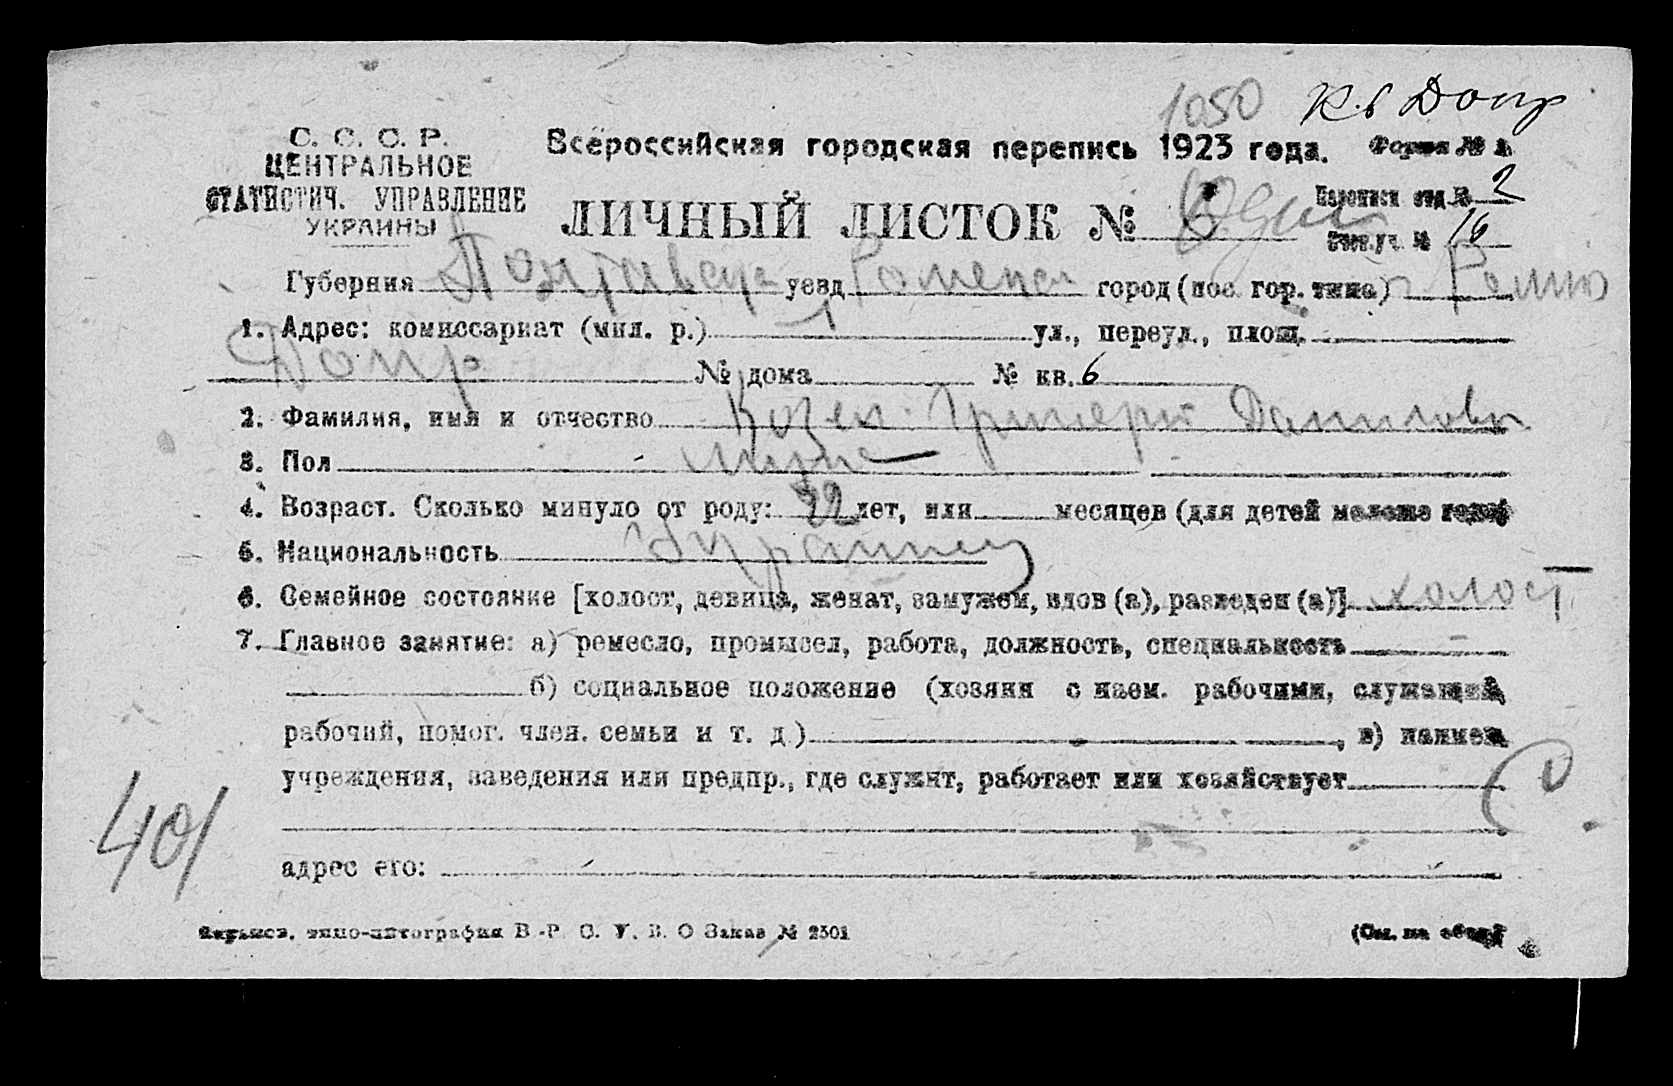 1050 К.б Допр
С. С. С. Р. Всероссийская городская перепись 1923 года. Форма № 1.
ЦЕНТРАЛЬНОЕ
СТАТИСТИЧ. УПРАВЛЕНИЕ Переписн отд № 2
УКРАИНЫ ЛИЧНЫЙ ЛИСТОК № Один Счет.уч. № 16
Губерния Полтавская уезд Роменск город (пос. гор. типа) Ромны
1. Адрес: комиссариат (мил. р.) 1 ул., переул., площ.
Допр № дома № кв. 6
2. Фамилия, имя и отчество Козел Григорий Данилов
3. Пол муж
4. Возраст. Сколько минуло от роду: 22 лет, или месяцев (для детей моложе года)
5. Национальность Украинец
6. Семейное состояние [холост, девица, женат, замужем, вдов (а), разведен (а)] холост
7. Главное занятие: а) ремесло, промысел, работа, должность, специальность
б) социальное положение (хозяин с наем. рабочими, служащий,
рабочий, помог. член. семьи и т. д.) , в) наимен.
учреждения, заведения или предпр., где служит, работает или хозяйствует
401
адрес его:
Харьков, типо-литография В.-Р. С. У. В. О Заказ № 2501 (См. на обор.)